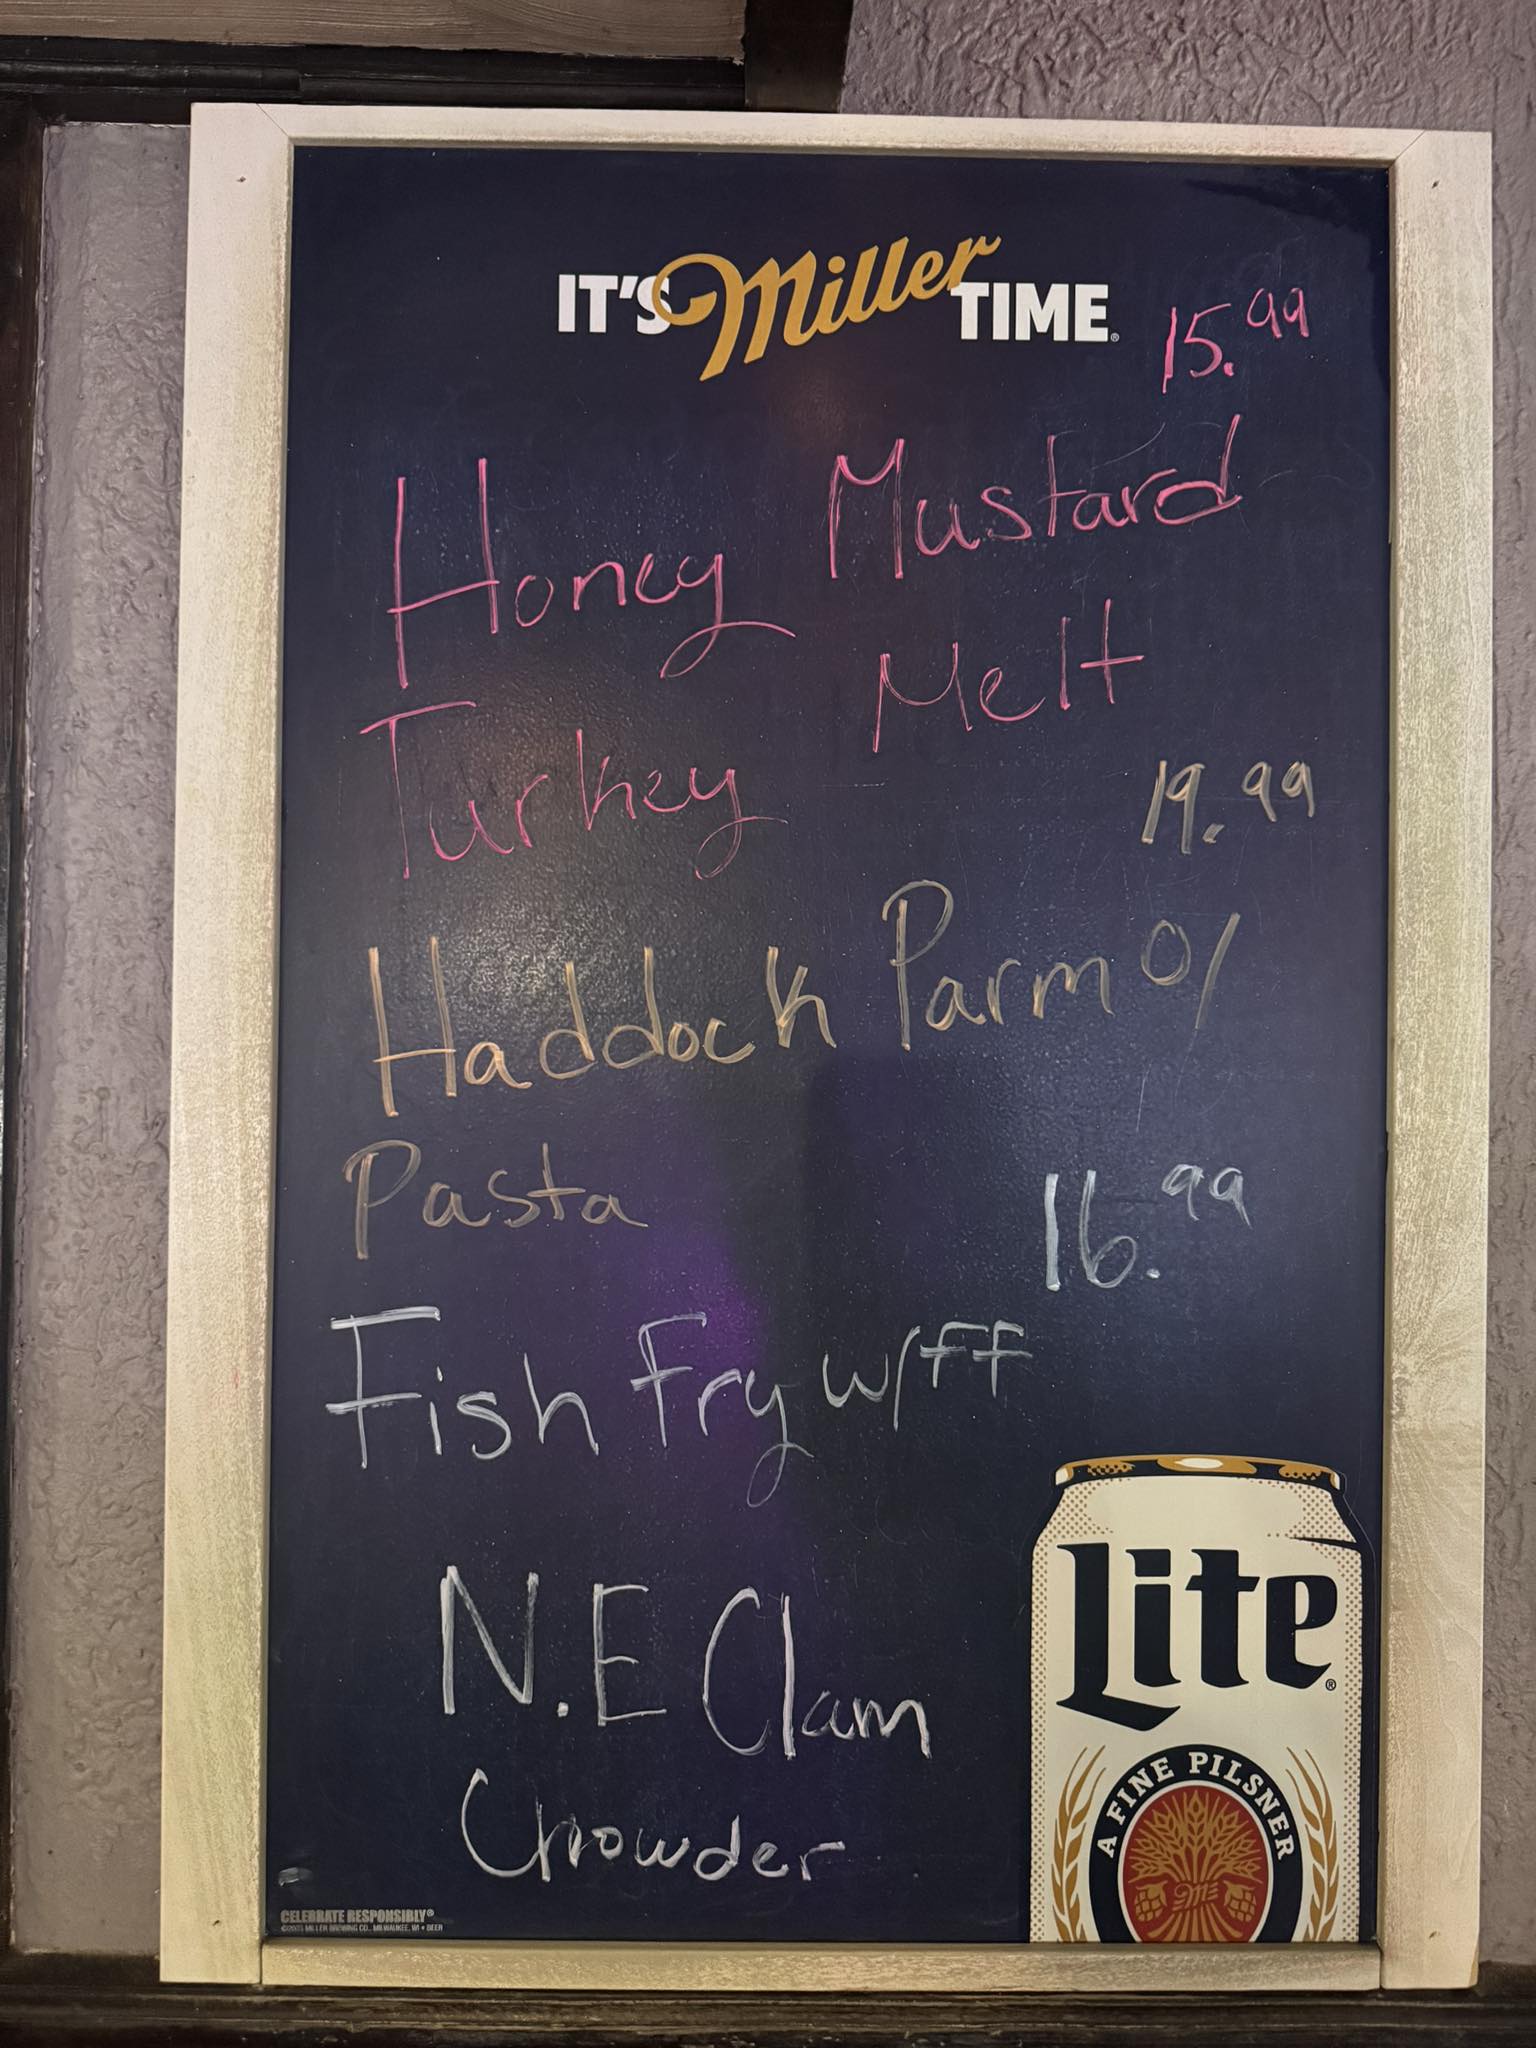 IT'S Miller TIME®
15.99
Honey Mustard
Turkey Melt
19.99
Haddock Parm o/
Pasta
16.99
Fish Fry w/FF
N.E Clam
Chowder
Lite®
A FINE PILSNER
CELEBRATE RESPONSIBLY®
MILLER BREWING CO., MILWAUKEE, WI • BEER